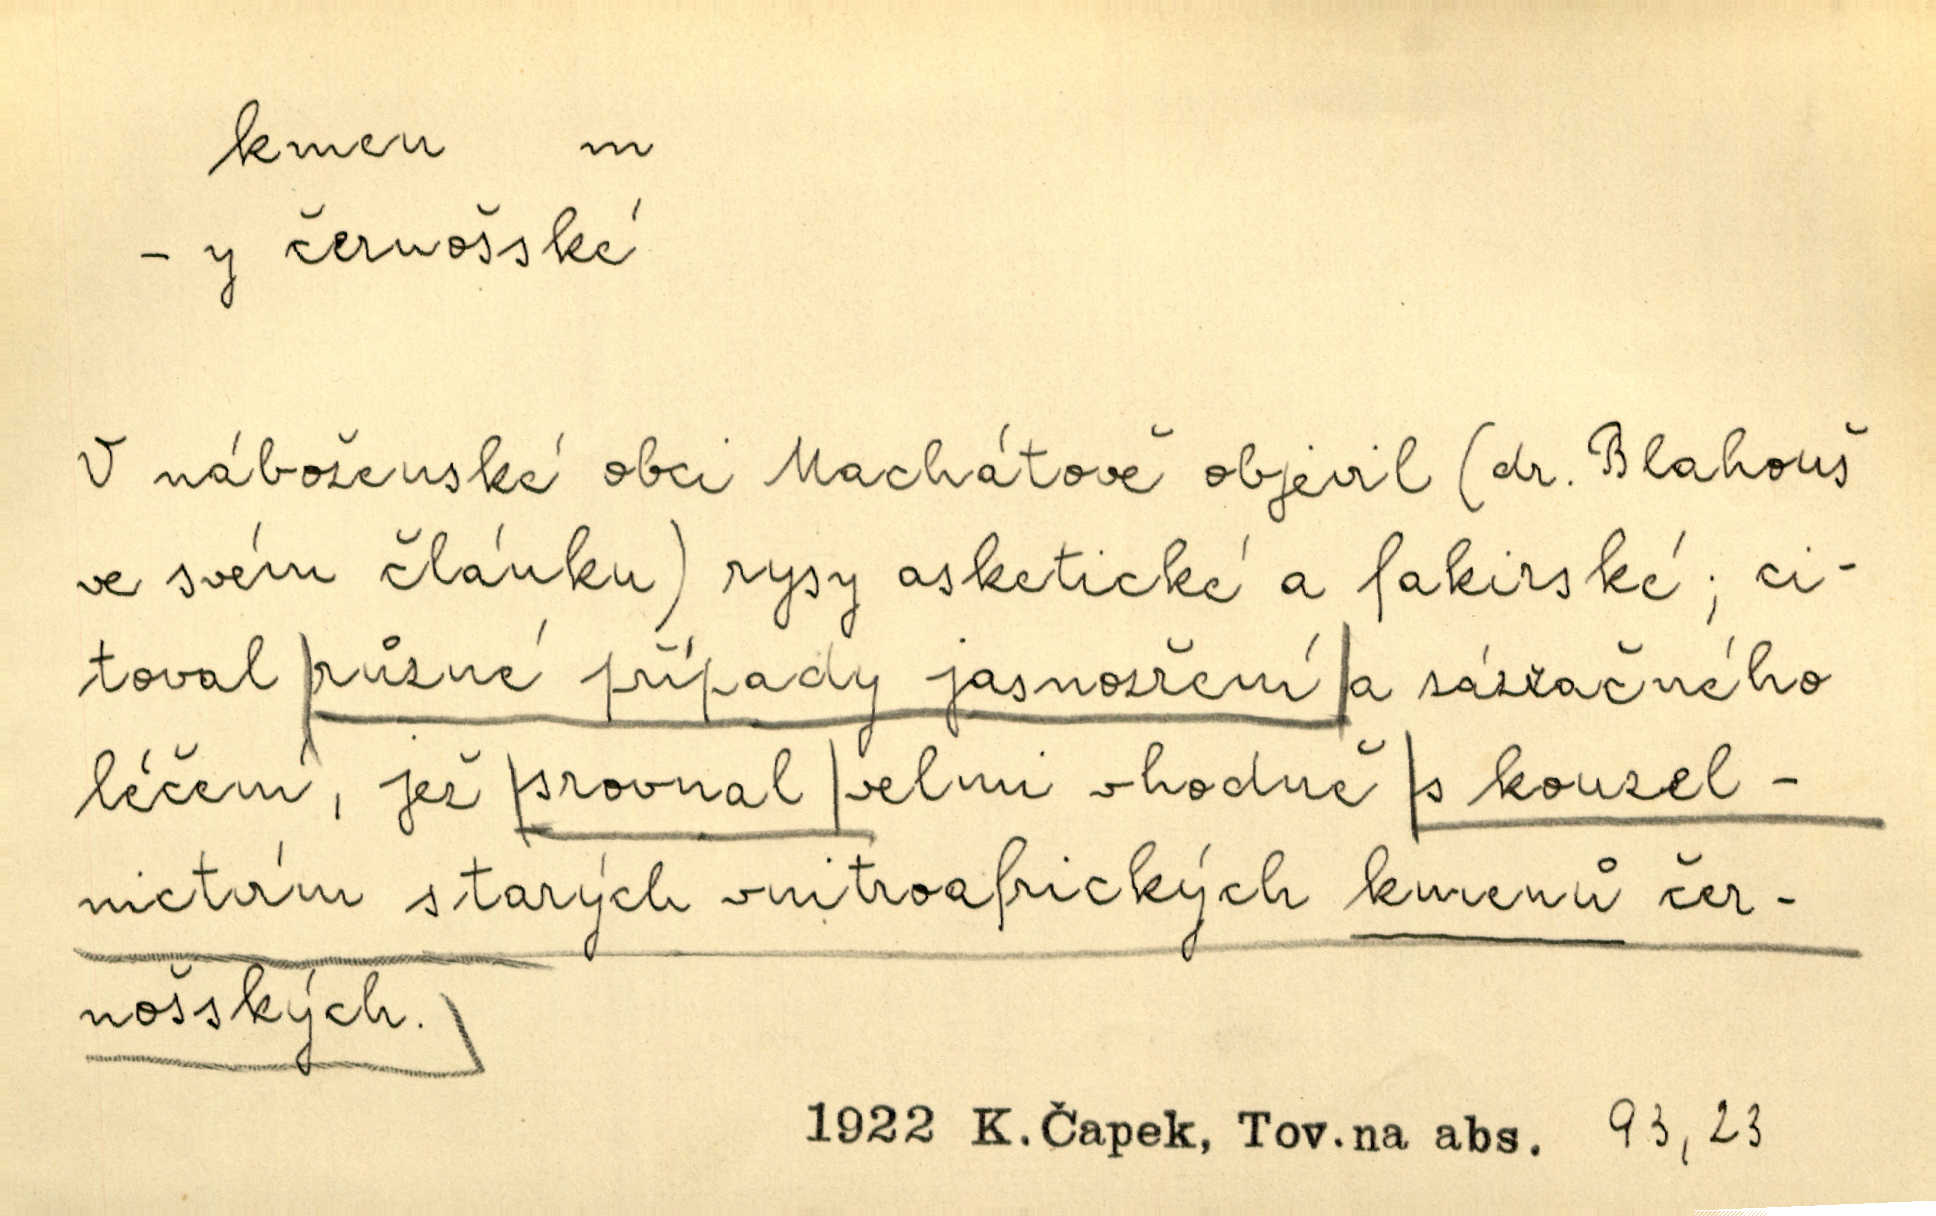 kmen m
- y černošské
V náboženské obci Machátově objevil (dr. Blahouš
ve svém článku) rysy asketické a fakirské; ci-
toval různé případy jasnozření a zázračného
léčení, jež srovnal velmi vhodně s kouzel-
nictvím starých vnitroafrických kmenů čer-
nošských.
1922 K. Čapek, Tov.na abs. 93,23